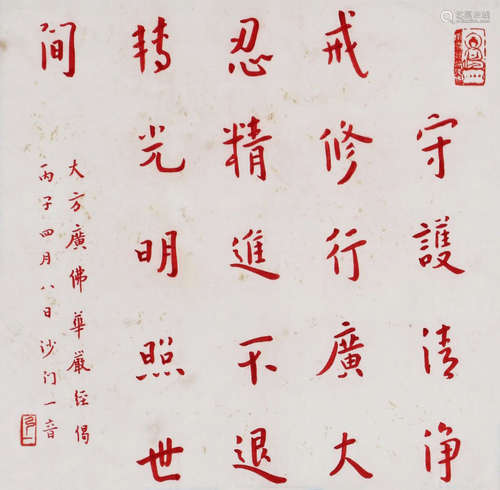 守護清淨
戒修行廣大
忍精進不退
轉光明照世
間
大方廣佛華嚴經偈
丙子四月八日沙门一音